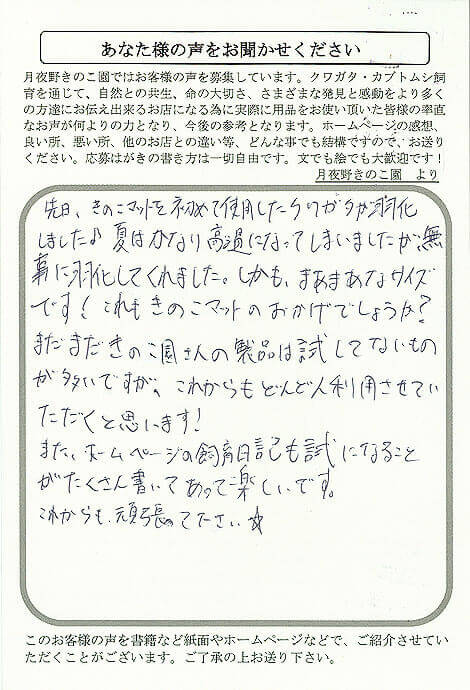 あなた様の声をお聞かせください
月夜野きのこ園ではお客様の声を募集しています。クワガタ・カブトムシ飼
育を通じて、自然との共生、命の大切さ、さまざまな発見と感動をより多く
の方達にお伝え出来るお店になる為に実際に用品をお使い頂いた皆様の率直
なお声が何よりの力となり、今後の参考となります。ホームページの感想、
良い所、悪い所、他のお店との違い等、どんな事でも結構ですので、お送り
ください。応募はがきの書き方は一切自由です。文でも絵でも大歓迎です！
月夜野きのこ園　より
先日、きのこマットを初めて使用したクワガタが羽化
しました♪夏はかなり高温になってしまいましたが無
事に羽化してくれました。しかも、まあまあなサイズ
です！これもきのこマットのおかげでしょうか？
まだまだきのこ園さんの製品は試してないもの
が多いですが、これからもどんどん利用させてい
ただくと思います！
また、ホームページの飼育日記も試になること
がたくさん書いてあって楽しいです。
これからも、頑張って下さい☆
このお客様の声を書籍など紙面やホームページなどで、ご紹介させてい
ただくことがございます。ご了承の上お送り下さい。